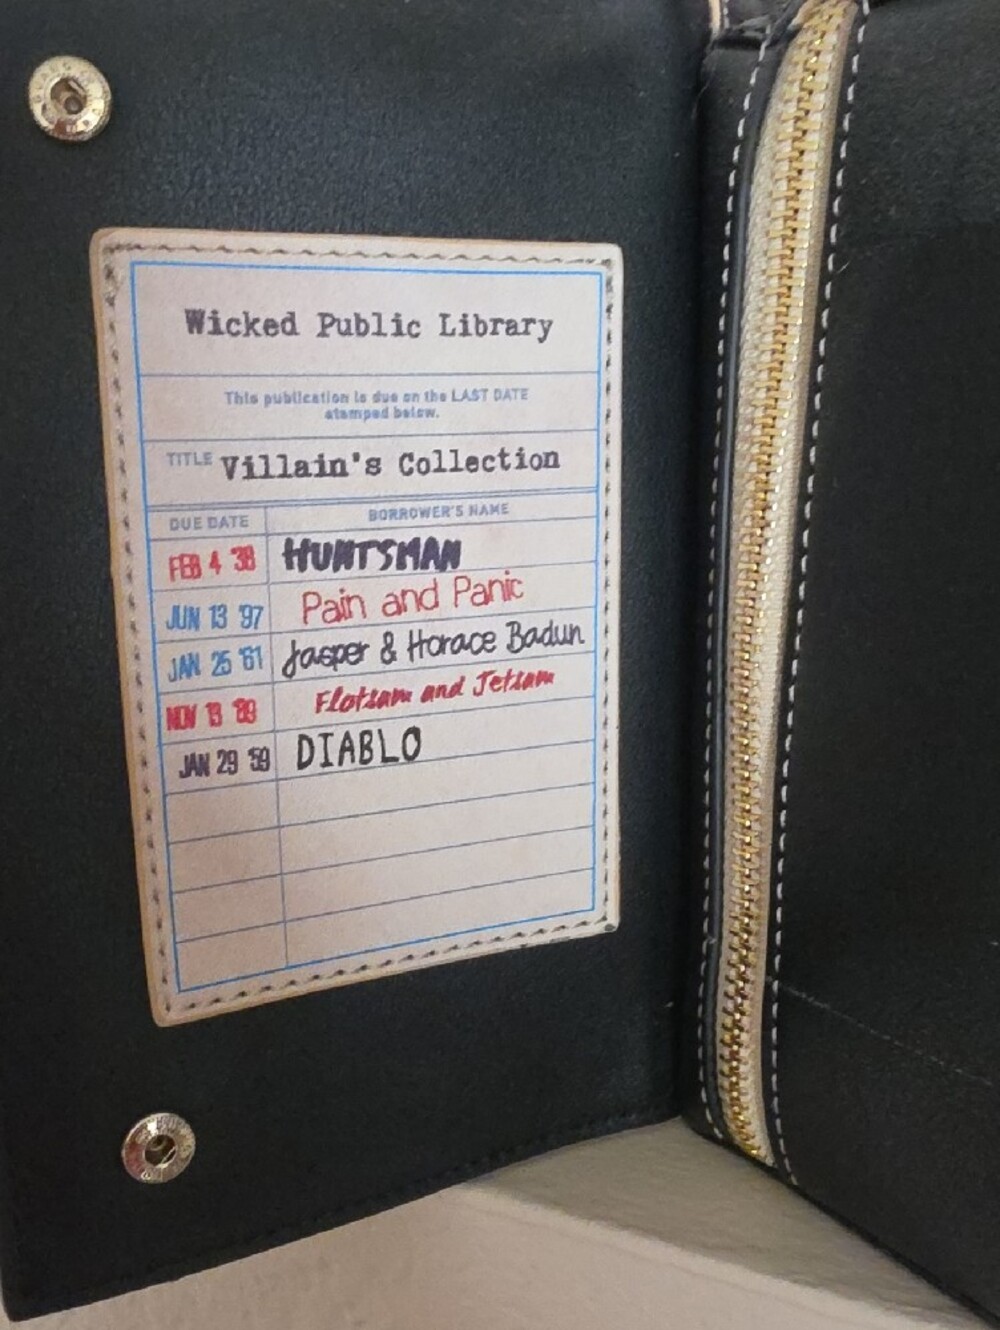 Wicked Public Library
This publication is due on the LAST DATE
stamped below.
TITLE Villain's Collection
DUE DATE BORROWER'S NAME
FEB 4 '38 HUNTSMAN
JUN 13 '97 Pain and Panic
JAN 25 '61 Jasper & Horace Badun
NOV 13 '89 Flotsam and Jetsam
JAN 29 '59 DIABLO